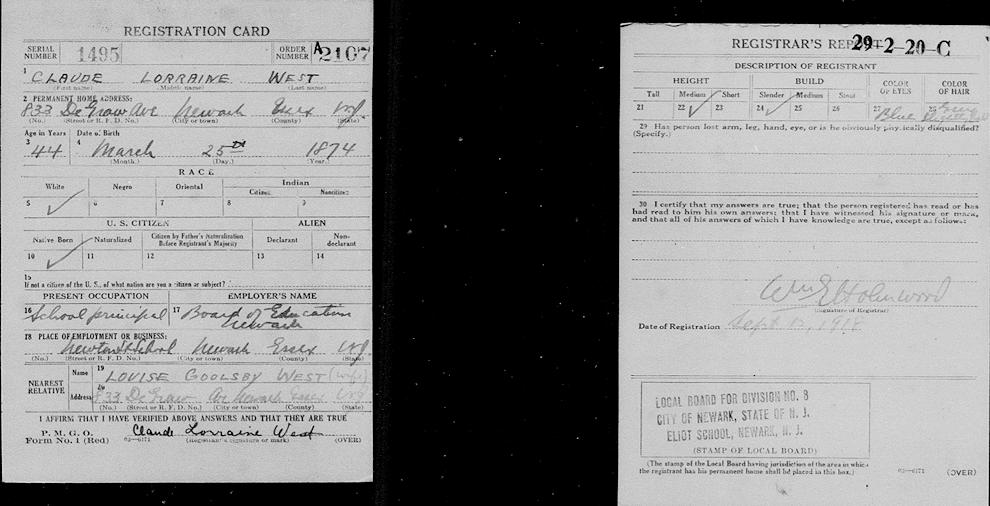 REGISTRATION CARD
SERIAL NUMBER 1495 ORDER NUMBER A2107
1 CLAUDE LORRAINE WEST
(First name) (Middle name) (Last name)
2 PERMANENT HOME ADDRESS:
833 De Graw Ave Newark Essex NJ.
(No.) (Street or R. F. D. No.) (City or town) (County) (State)
Age in Years Date of Birth
3 44 4 March 25th 1874
(Month.) (Day.) (Year.)
RACE
White Negro Oriental Indian
Citizen Noncitizen
5 ✓ 6 7 8 9
U. S. CITIZEN ALIEN
Native Born Naturalized Citizen by Father's Naturalization Before Registrant's Majority Declarant Non-declarant
10 ✓ 11 12 13 14
15
If not a citizen of the U. S., of what nation are you a citizen or subject?
PRESENT OCCUPATION EMPLOYER'S NAME
16 School principal 17 Board of Education
Newark
18 PLACE OF EMPLOYMENT OR BUSINESS:
Newton St School Newark Essex NJ.
(No.) (Street or R. F. D. No.) (City or town) (County) (State)
NEAREST RELATIVE Name 19 LOUISE GOOLSBY WEST (wife)
Address 20 833 De Graw Ave Newark Essex NJ
(No.) (Street or R. F. D. No.) (City or town) (County) (State)
I AFFIRM THAT I HAVE VERIFIED ABOVE ANSWERS AND THAT THEY ARE TRUE
P. M. G. O.
Form No. 1 (Red) 03—6171 Claude Lorraine West
(Registrant's signature or mark) (OVER)
REGISTRAR'S REPORT 29-2-20-C
DESCRIPTION OF REGISTRANT
HEIGHT BUILD COLOR OF EYES COLOR OF HAIR
Tall Medium Short Slender Medium Stout
21 22 ✓ 23 24 ✓ 25 26 27 Blue 28
29 Has person lost arm, leg, hand, eye, or is he obviously physically disqualified?
(Specify.)
30 I certify that my answers are true; that the person registered has read or has
had read to him his own answers; that I have witnessed his signature or mark,
and that all of his answers of which I have knowledge are true, except as follows:
Wm E Holmwood
(Signature of Registrar)
Date of Registration Sept 12, 1918
LOCAL BOARD FOR DIVISION NO. 8
CITY OF NEWARK, STATE OF N. J.
ELIOT SCHOOL, NEWARK, N. J.
(STAMP OF LOCAL BOARD)
(The stamp of the Local Board having jurisdiction of the area in which
the registrant has his permanent home shall be placed in this box.) 03—6171 (OVER)